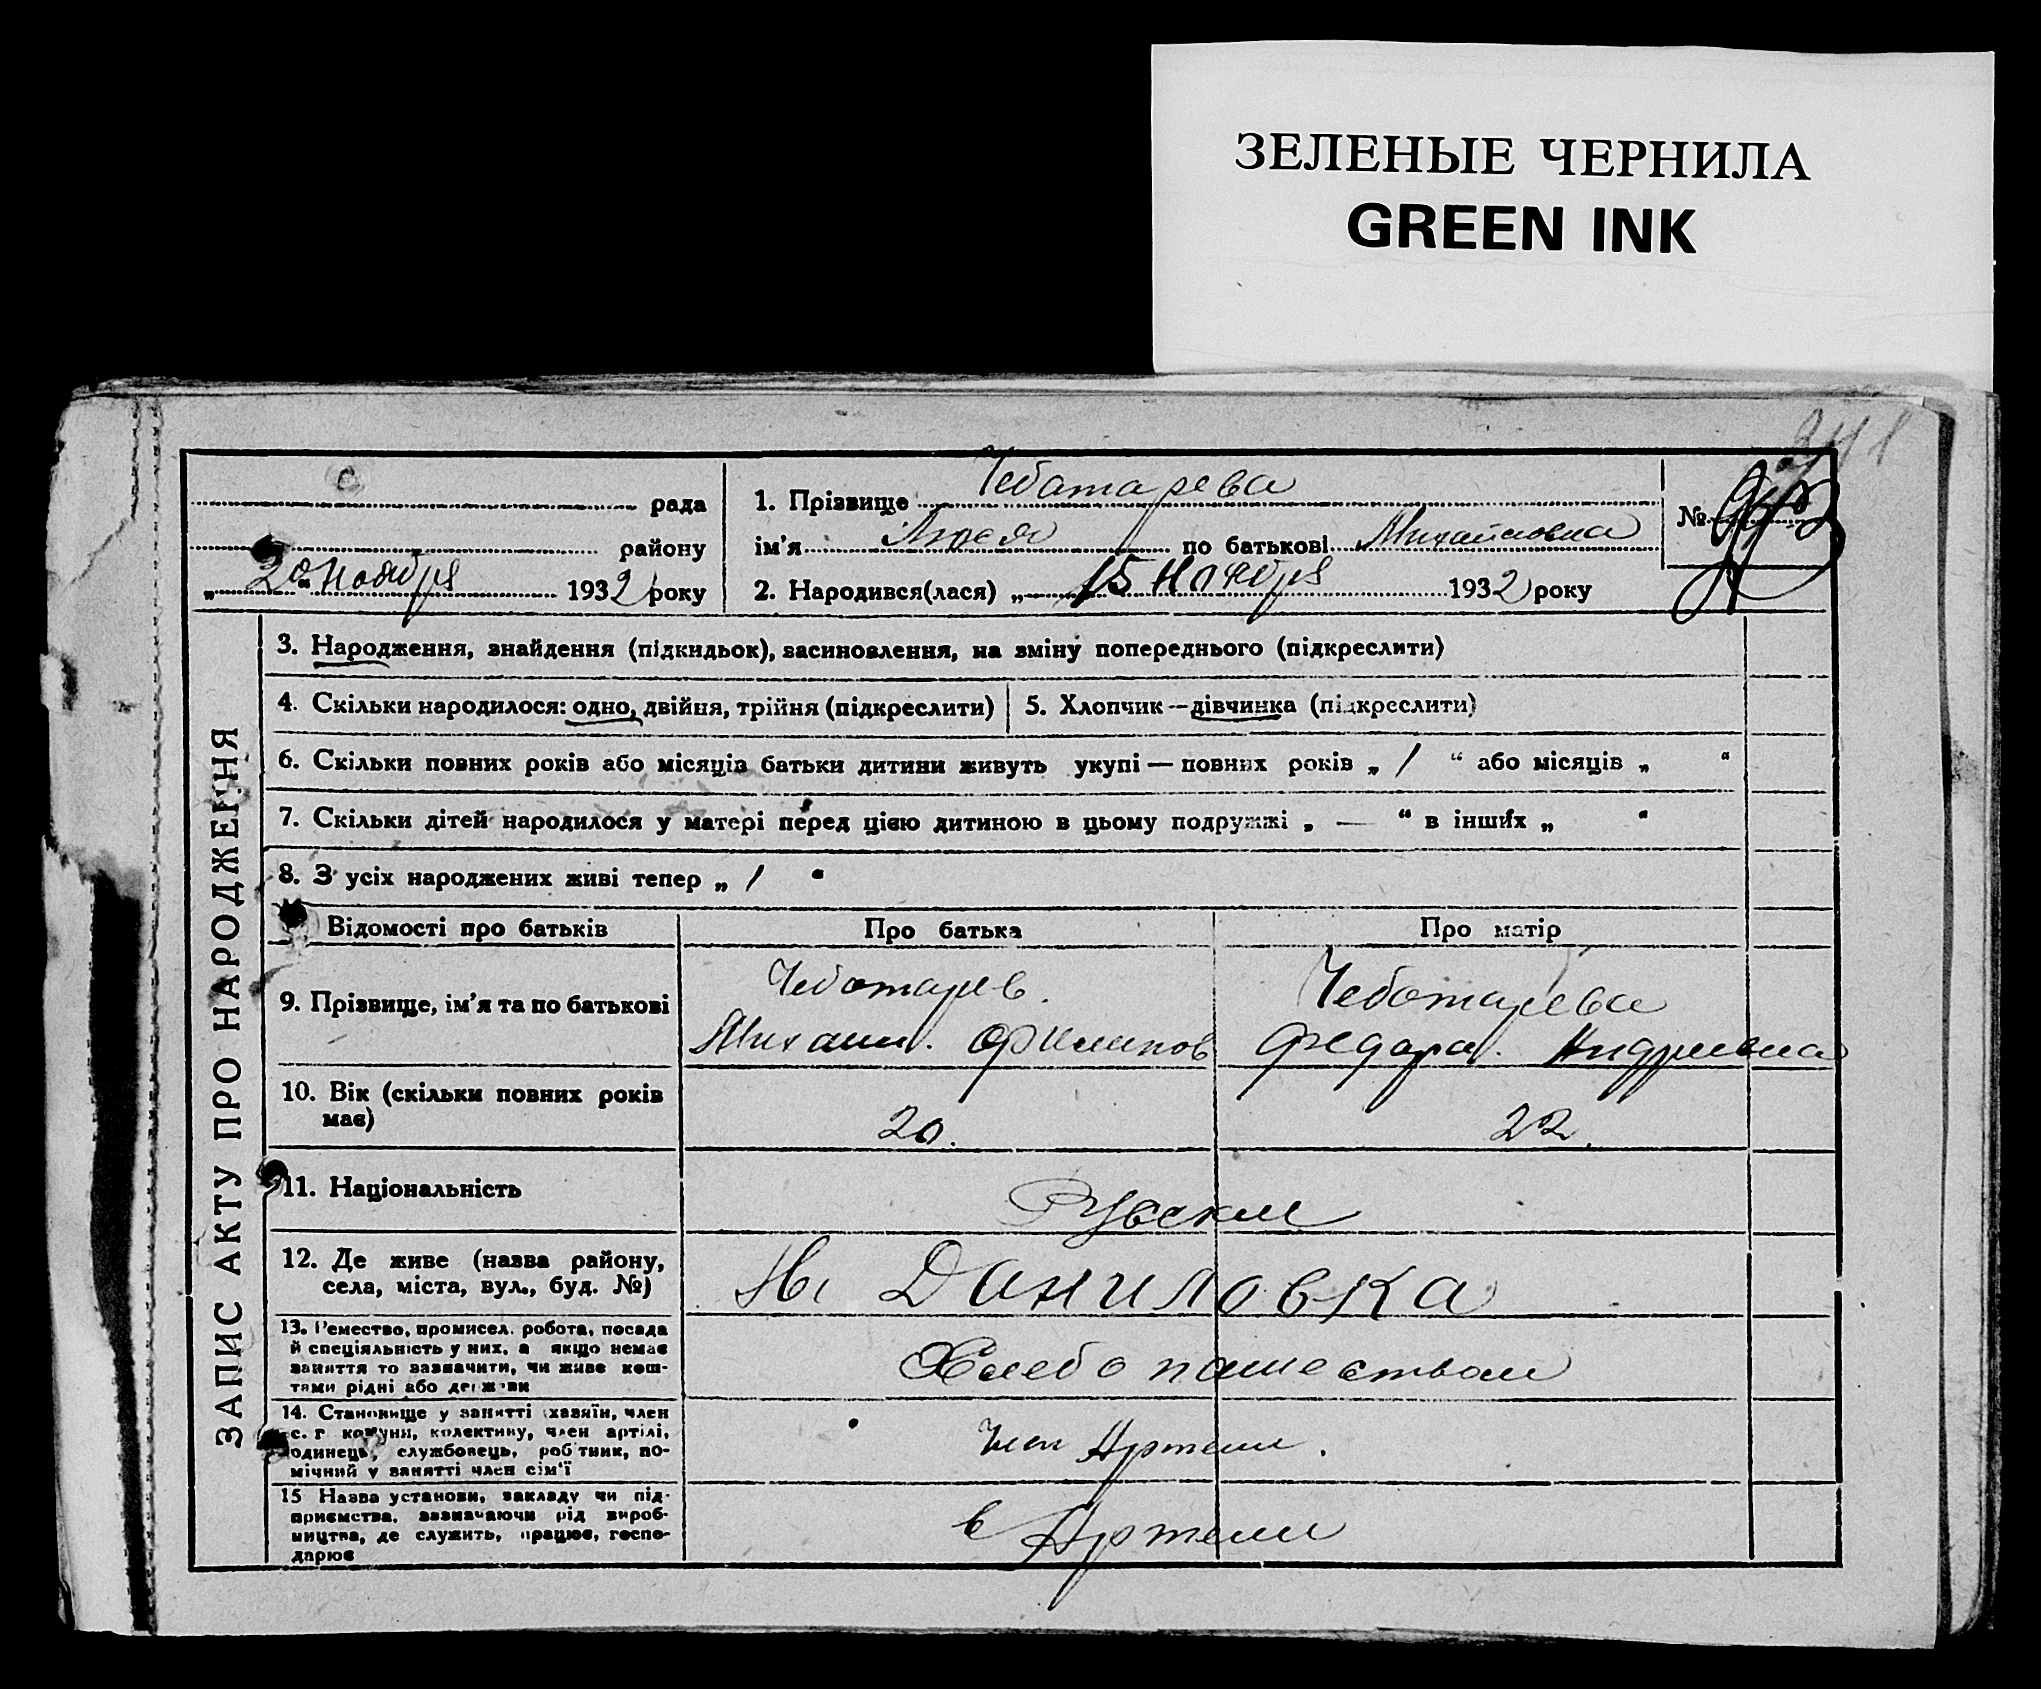 ЗЕЛЕНЫЕ ЧЕРНИЛА
GREEN INK
рада
району
„20“ Ноября 1932 року
1. Прізвище Чебатарева
ім'я по батькові Михайловна
2. Народився(лася) „15 Ноября 1932 року
№
ЗАПИС АКТУ ПРО НАРОДЖЕННЯ
3. Народження, знайдення (підкидьок), засиновлення, на зміну попереднього (підкреслити)
4. Скільки народилося: одно, двійня, трійня (підкреслити)
5. Хлопчик — дівчинка (підкреслити)
6. Скільки повних років або місяців батьки дитини живуть укупі — повних років „ 1 “ або місяців „ “
7. Скільки дітей народилося у матері перед цією дитиною в цьому подружжі „ — “ в інших „ “
8. З усіх народжених живі тепер „ 1 “
Відомості про батьків
Про батька
Про матір
9. Прізвище, ім'я та по батькові
Чеботарев.
Михаил. Филипов
Чеботарева
Федора. Андриевна
10. Вік (скільки повних років
має)
20.
22.
11. Національність
Руские
12. Де живе (назва району,
села, міста, вул., буд. №)
Н. Даниловка
13. Ремество, промисел. робота, посада
й спеціяльність у них, а якщо немає
заняття то зазначити, чи живе кош-
тами рідні або держави
Хлебопашеством
14. Становище у занятті (хазяїн, член
с. г комуни, колективу, член артілі,
одинець, службовець, робітник, по-
мічний у занятті член сім'ї
Член Артели.
15 Назва установи, закладу чи під-
приємства, зазначаючи рід вироб-
ництва, де служить, працює, госпо-
дарює
в Артели